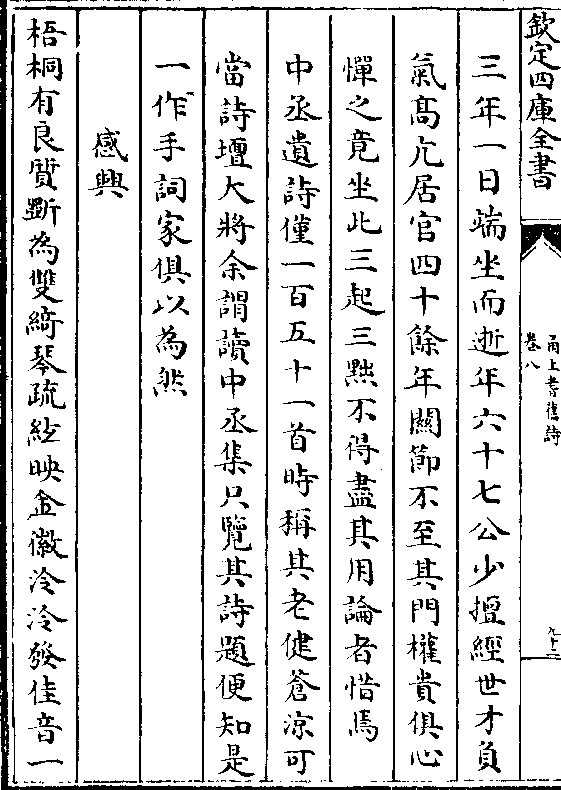 欽定四庫全書
甬上耆舊詩
卷八
九十二
三年一日端坐而逝年六十七公少擅經世才負
氣髙亢居官四十餘年關節不至其門權貴俱心
憚之竟坐此三起三黜不得盡其用論者惜焉
中丞遺詩僅一百五十一首時稱其老健蒼凉可
當詩壇大將余謂讀中丞集只覽其詩題便知是
一作手詞家俱以為然
感興
梧桐有良質斵為雙綺琴疏絃映金徽泠泠發佳音一